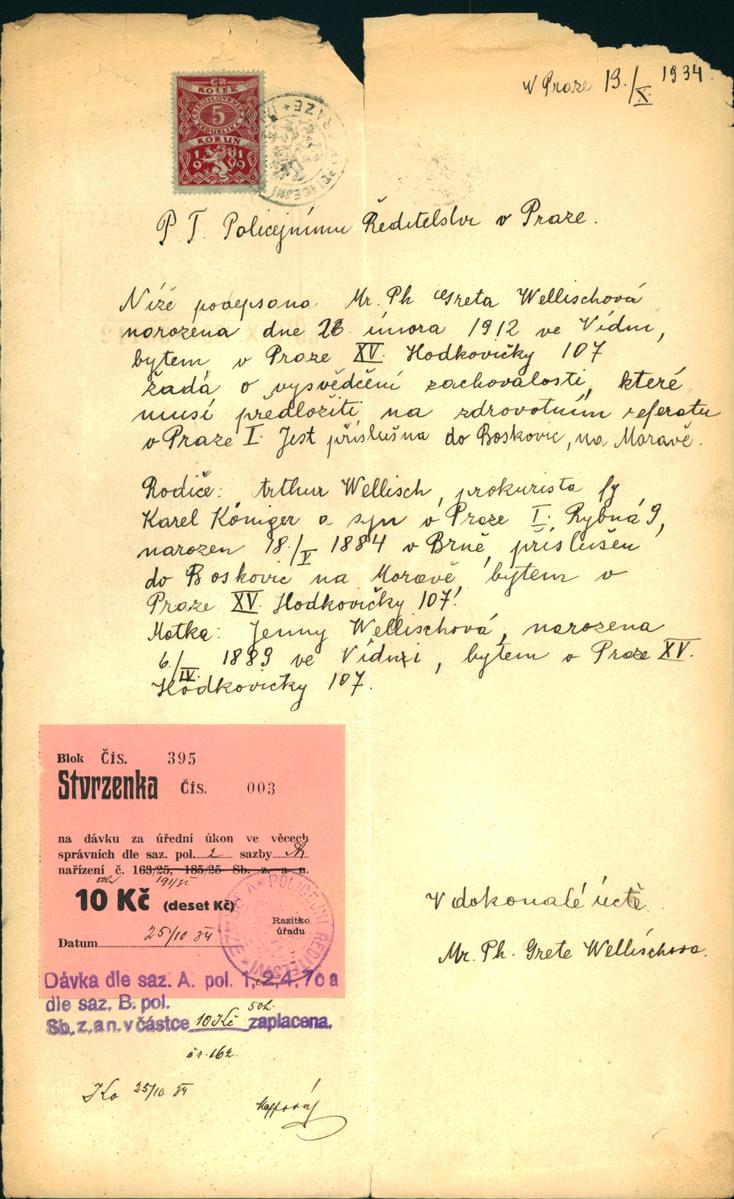 V Praze 13./X. 1934.
KOLEK
ČESKOSLOVENSKÁ
5
REPUBLIKA
KORUN
1919
P. T. Policejnímu Ředitelství v Praze.
Níže podepsaná Mr. Ph Greta Wellischová
narozena dne 28 února 1912 ve Vídni,
bytem v Praze XV. Hodkovičky 107
žádá o vysvědčení zachovalosti, které
musí predložiti na zdrovotním referatu
v Praze I. Jest příslušna do Boskovic, na Moravě.
Rodiče: Arthur Wellisch, prokurista fy
Karel Königer a syn v Praze I. Rybná 9,
narozen 18./V 1884 v Brně, príslušen
do Boskovic na Moravě, bytem v
Praze XV. Hodkovičky 107.
Matka: Jenny Wellischová, narozena
6./IV. 1889 ve Vídni, bytem v Praze XV.
Hodkovičky 107.
Blok ČÍS. 395
Stvrzenka ČÍS. 003
na dávku za úřední úkon ve věcech
správních dle saz. pol. 2 sazby A
nařízení č. 163/25, 185/25 Sb. z. a n.
10 Kč (deset Kč)
Razítko
úřadu
Datum 25/10 34
POLICEJNÍ ŘEDITELSTVÍ
Dávka dle saz. A. pol. 1, 2, 4, 7c a
dle saz. B. pol.
Sb. z. a n. v částce 10 Kč 50h. zaplacena.
V dokonalé úctě
Mr. Ph. Grete Wellischova.
25/10 34